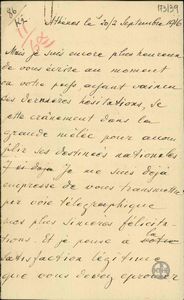 113/39
Athènes le 20/2 Septembre 1916
Mais je suis encore plus heureux
de vous écrire au moment
où votre pays, ayant vaincu
ses dernières hésitations, se
jette crânement dans la
grande mêlée pour accom
plir ses destinées nationales
je me suis déjà
empressé de vous transmettre
par voie télégraphique
mes plus sincères félicita
tions. Et je pense à la
satisfaction légitime
que vous devez éprouver